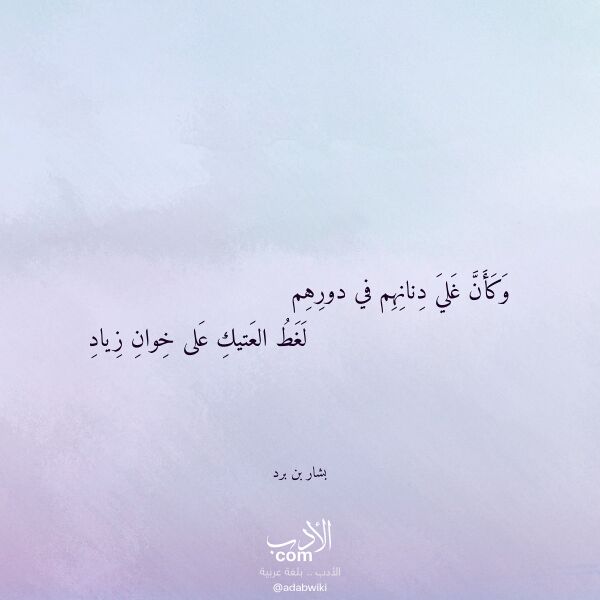 وَكَأَنَّ غَليَ دِنانِهِم في دورِهِم
لَغَطُ العَتيكِ عَلى خِوانِ زِيادِ
بشار بن برد
الأدب
com
الأدب .. بلغة عربية
@adabwiki